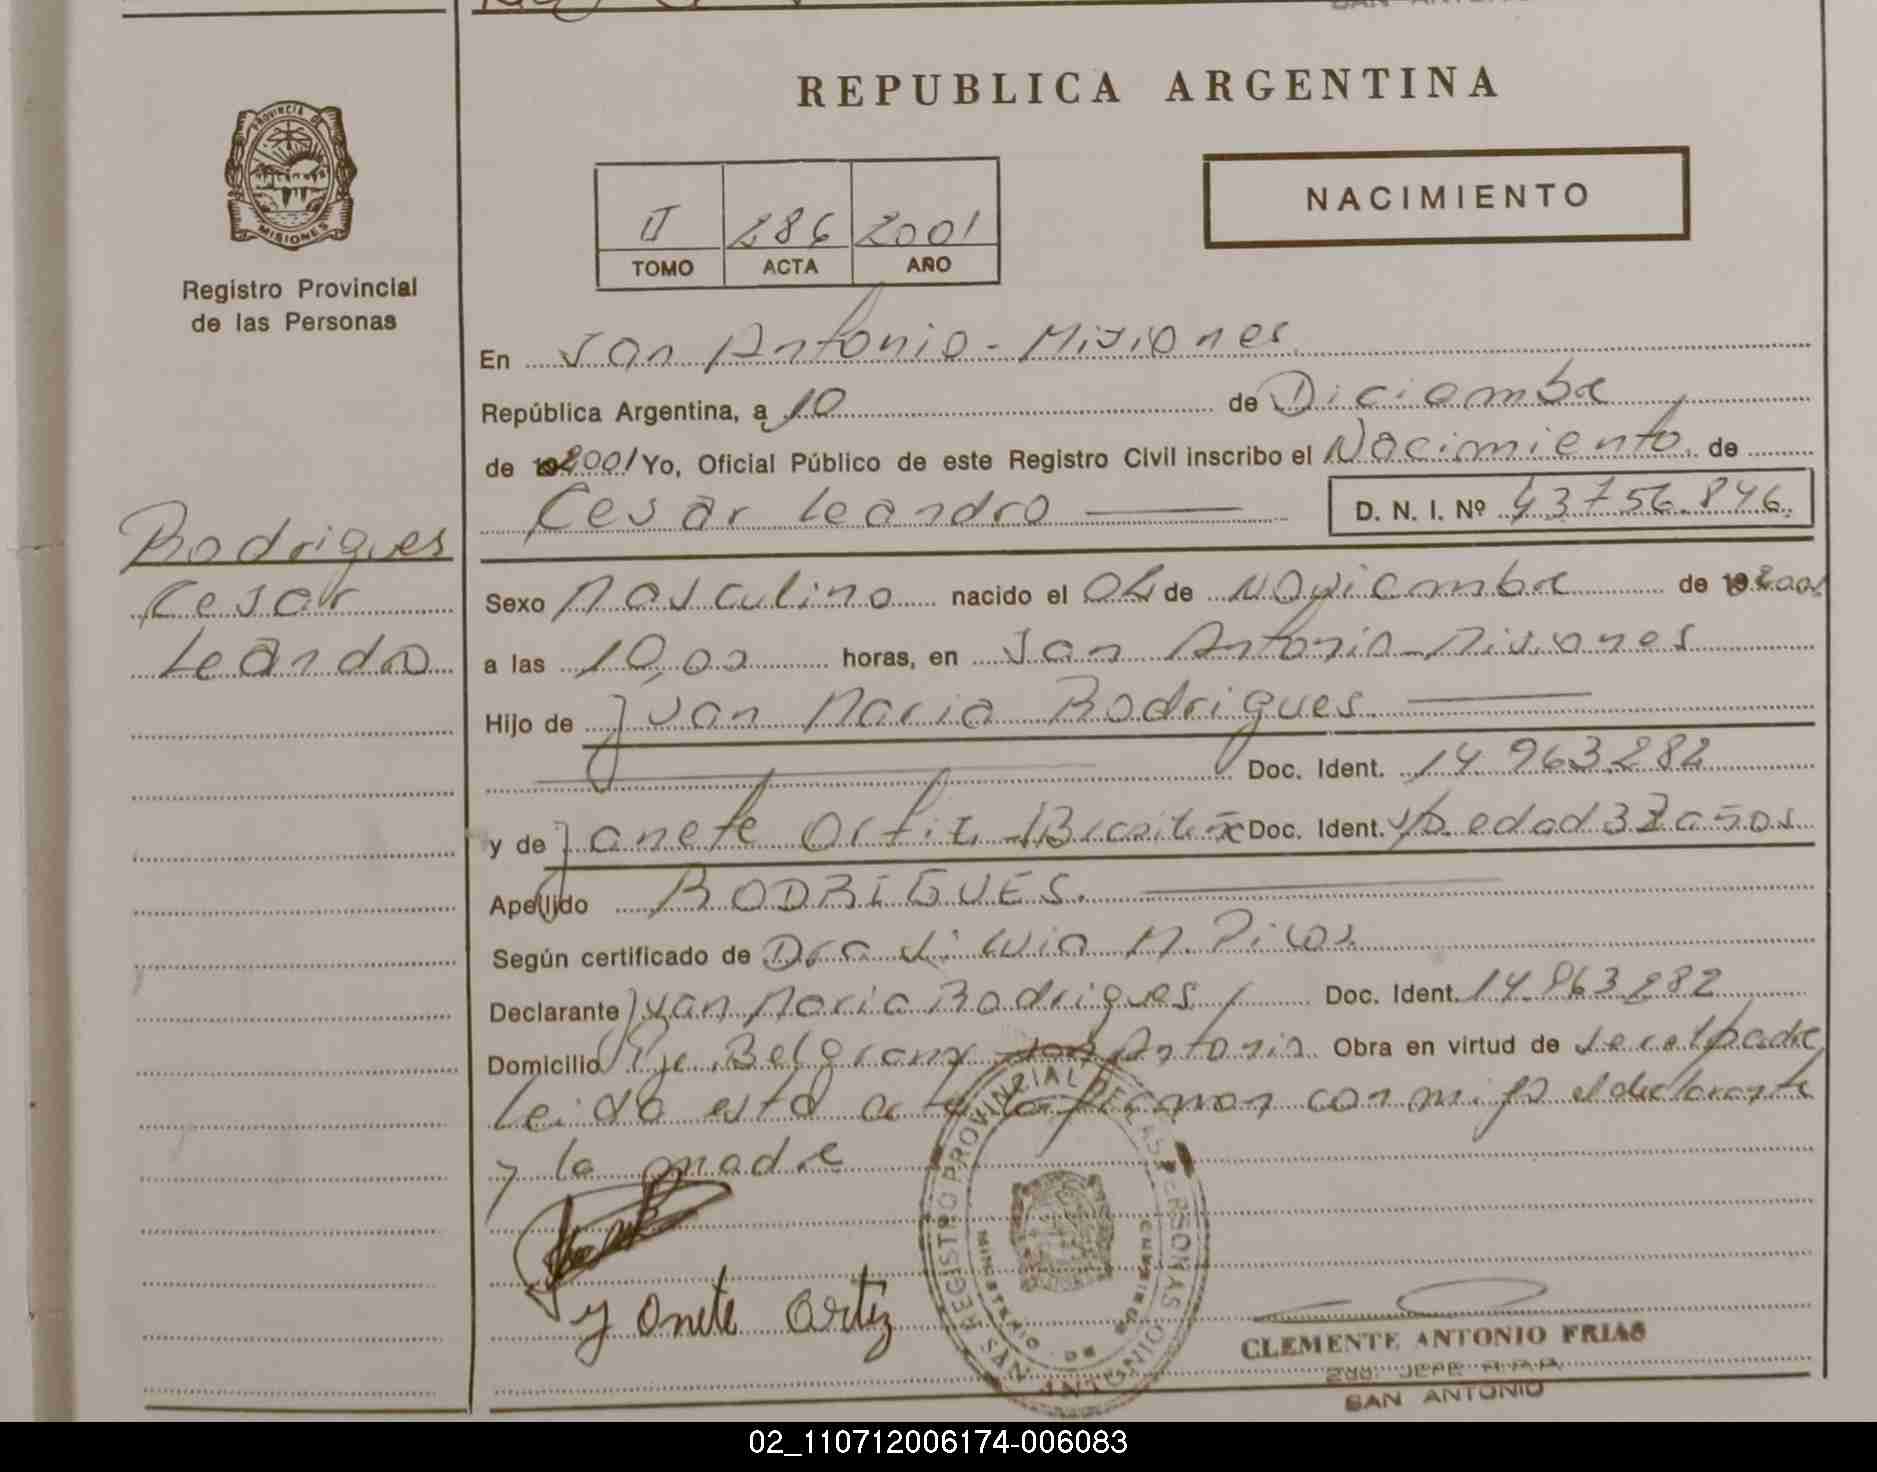 REPUBLICA ARGENTINA
PROVINCIA DE
MISIONES
Registro Provincial
de las Personas
NACIMIENTO
II 286 2001
TOMO ACTA AÑO
En San Antonio - Misiones
República Argentina, a 10 de Diciembre
de 2001 Yo, Oficial Público de este Registro Civil inscribo el Nacimiento de
Cesar Leandro D. N. I. Nº 43756.846.
Rodrigues
Cesar
Leandro
Sexo Masculino nacido el de Noviembre de 19 2001
a las 10,00 horas, en San Antonio - Misiones
Hijo de Juan Maria Rodrigues
Doc. Ident. 14.963.282
y de Janete Ortiz - Doc. Ident. edad 37 años
Apellido RODRIGUES.
Según certificado de Dra M.
Declarante Juan Maria Rodrigues Doc. Ident. 14.963.282
Domicilio Pje. Belgrano San Antonio Obra en virtud de ser el padre
Leida esta acta la firman con migo el declarante
y la madre
Yonete Ortiz
REGISTRO PROVINCIAL DE LAS PERSONAS
MINISTERIO DE GOBIERNO
SAN ANTONIO MNS
CLEMENTE ANTONIO FRIAS
2do. JEFE R.P.P.
SAN ANTONIO
02_110712006174-006083